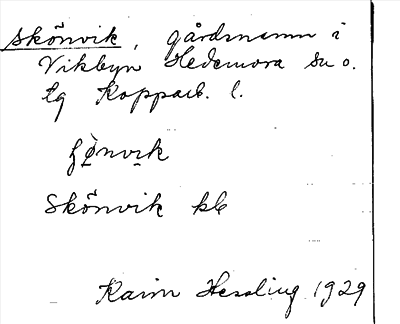 Skönvik, gårdsnamn i
Vikbyn Hedemora sn o.
tg Kopparb. l.
ʃø̀nvik
Skönvik kb
Karin Hessling 1929